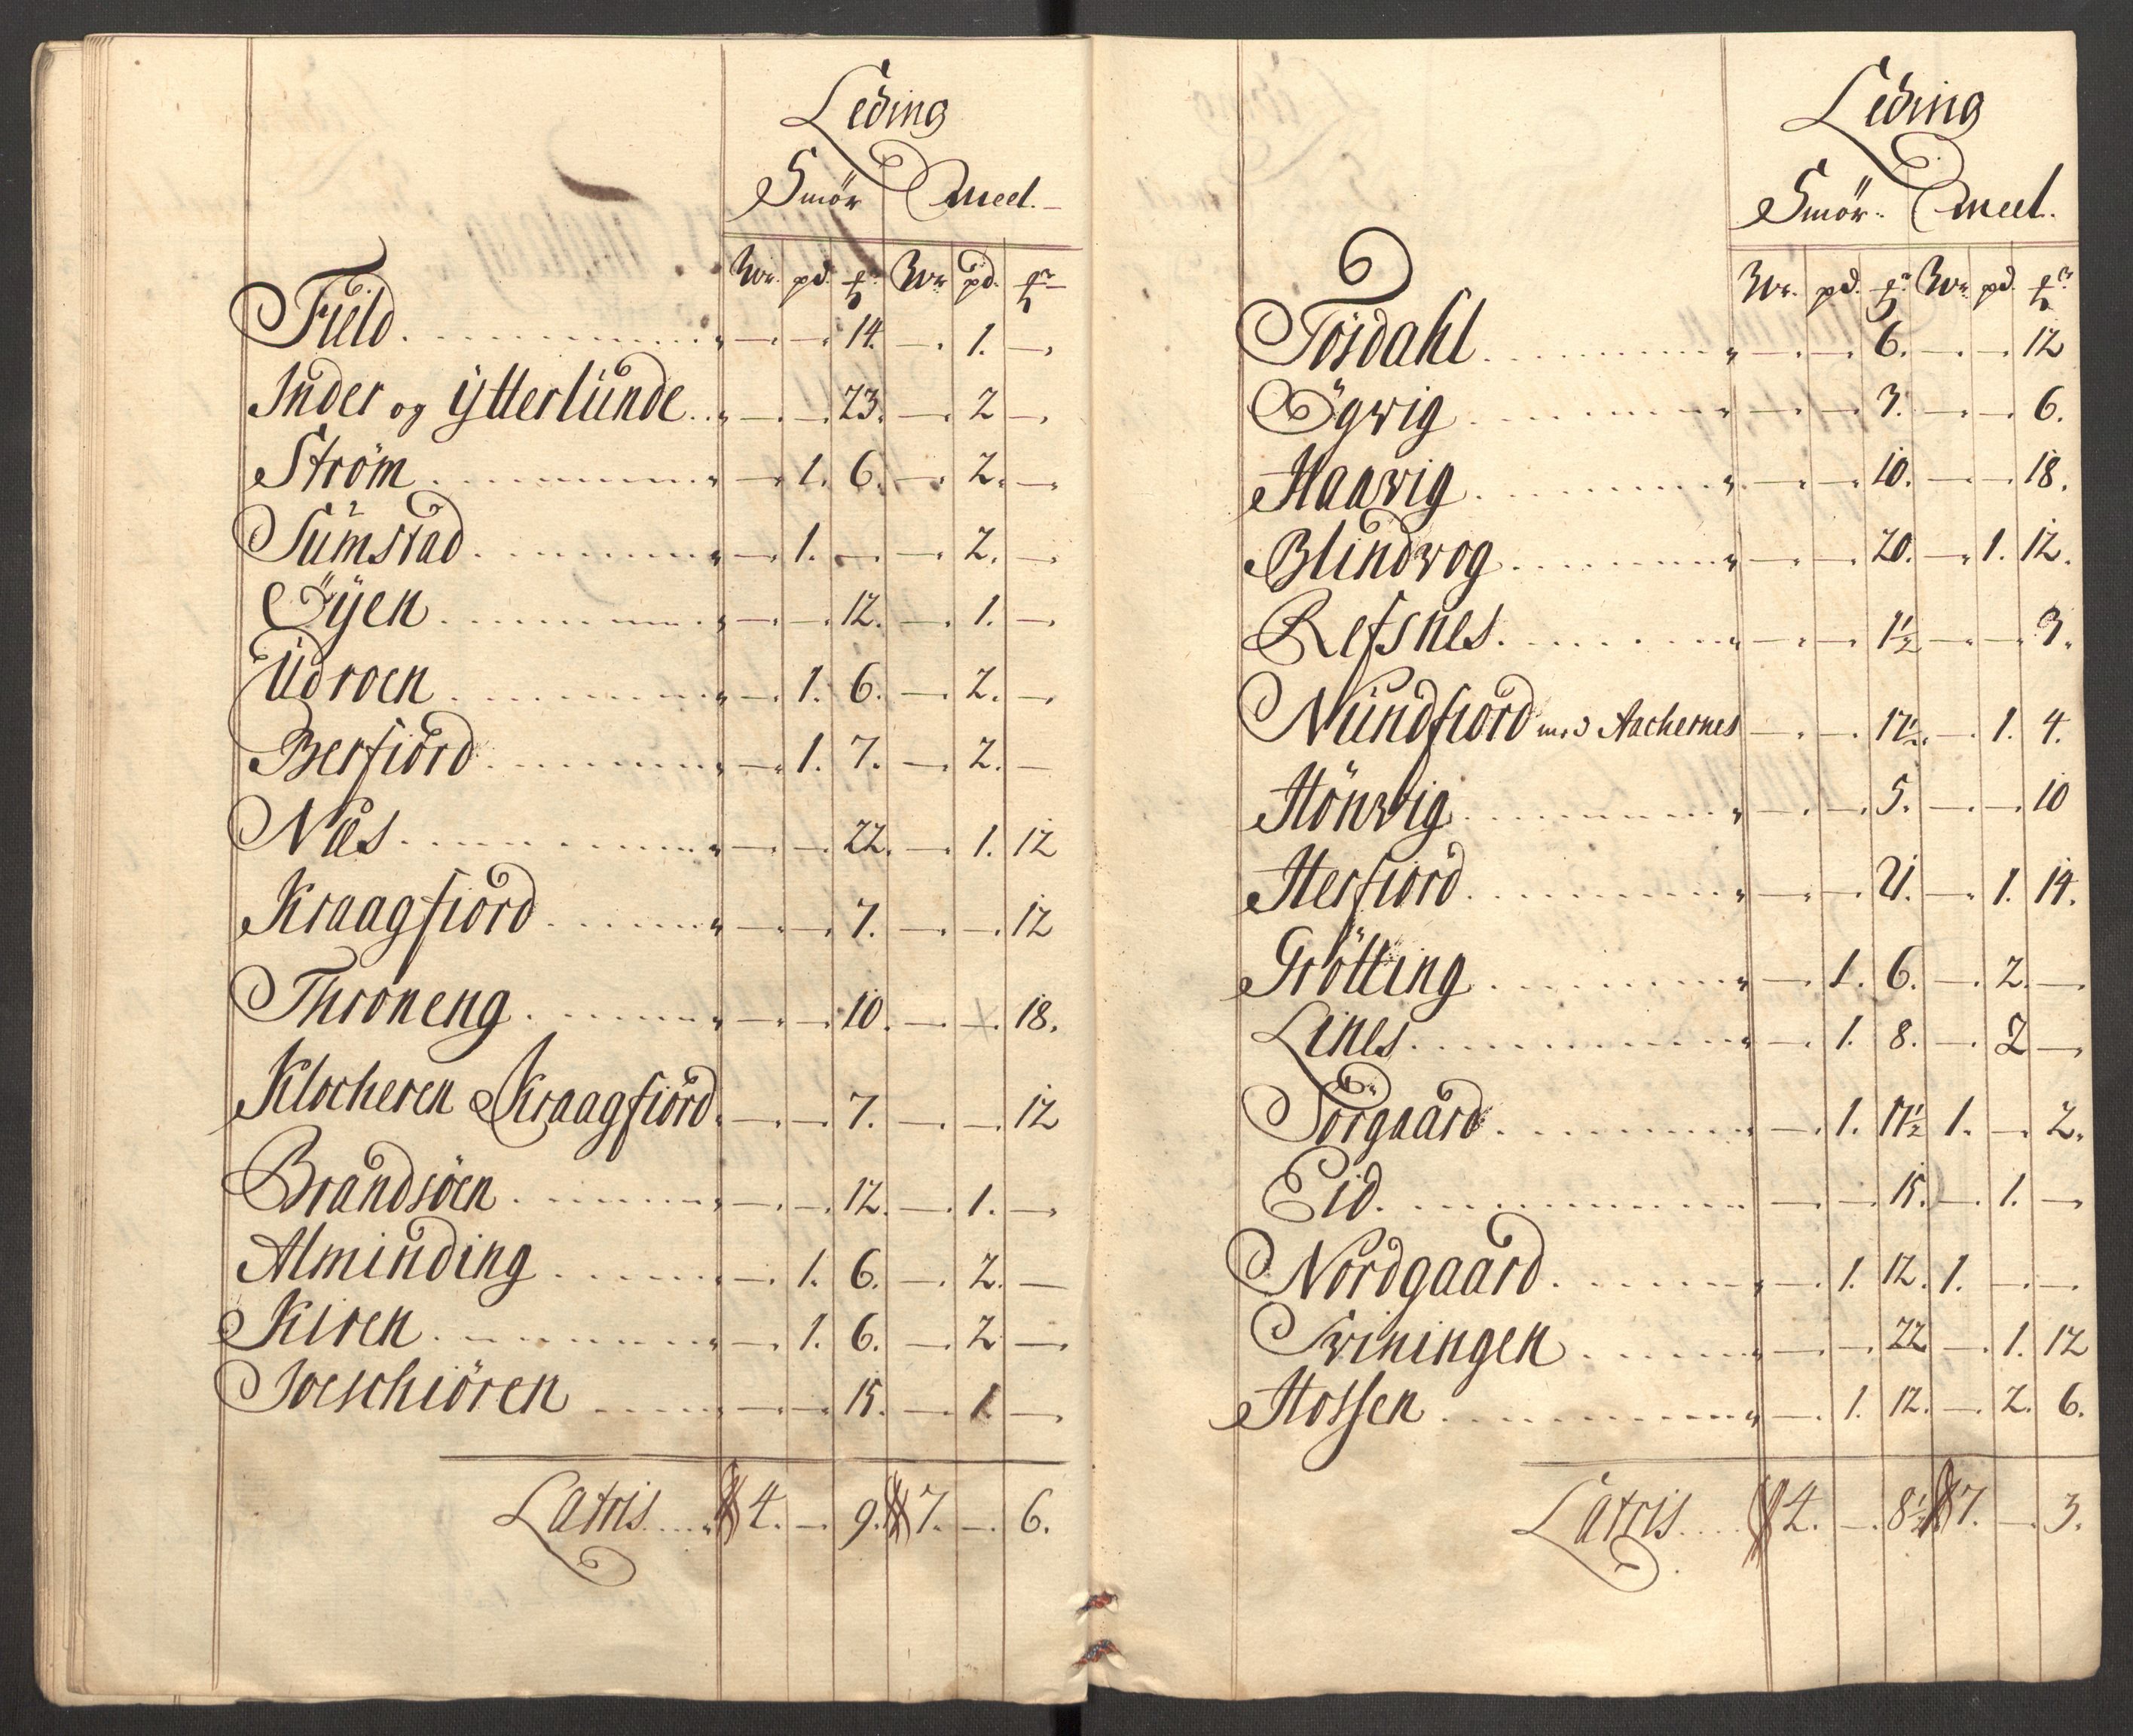 Leding
Smör Meel.
Wr. pd. ℔ Wr pd. ℔
Field. — — 14. — 1. —
Inder og Ÿtterlünde — — 23. — 2 —
Ström — 1. 6. — 2. —
Sümstad — 1. — — 2. —
Öÿen — — 12. — 1. —
Üdroen — 1. 6. — 2. —
Berfiord — 1. 7. — 2. —
Næs — — 22. — 1. 12
Kraagfiord — — 7. — — 12
Throneng — — 10. — — 18.
Klocheren Kraagfiord — — 7. — — 12
Brandsöen — — 12. — 1. —
Alminding — 1. 6. — 2. —
Kiren — 1. 6. — 2 —
Joeschiören — — 15. — 1 —
Latris 4. — 9. 7. — 6.
Leding
Smör. Meel.
Wr. pd. ℔ Wr. pd. ℔
Tösdahl — — 6. — — 12
Ögvig — — 3. — — 6.
Haavig — — 10. — — 18.
Blindvog — — 20. — 1. 12.
Refsnes — — 1½ — — 3.
Nündfiord med Aachernes — — 17½. — 1. 4.
Hönvig — — 5. — — 10
Herfiord — — 21. — 1. 14.
Grötting — 1. 6. — 2. —
Lines — 1. 8. — 2 —
Sörgaard — 1. 11½ 1. — 2.
Eid. — — 15. — 1. —
Nordgaard — 1. 12. 1. — —
Sviningen — — 22 — 1. 12
Hossen — 1. 12. — 2. 6.
Latris 4. — 8½ 7. — 3.